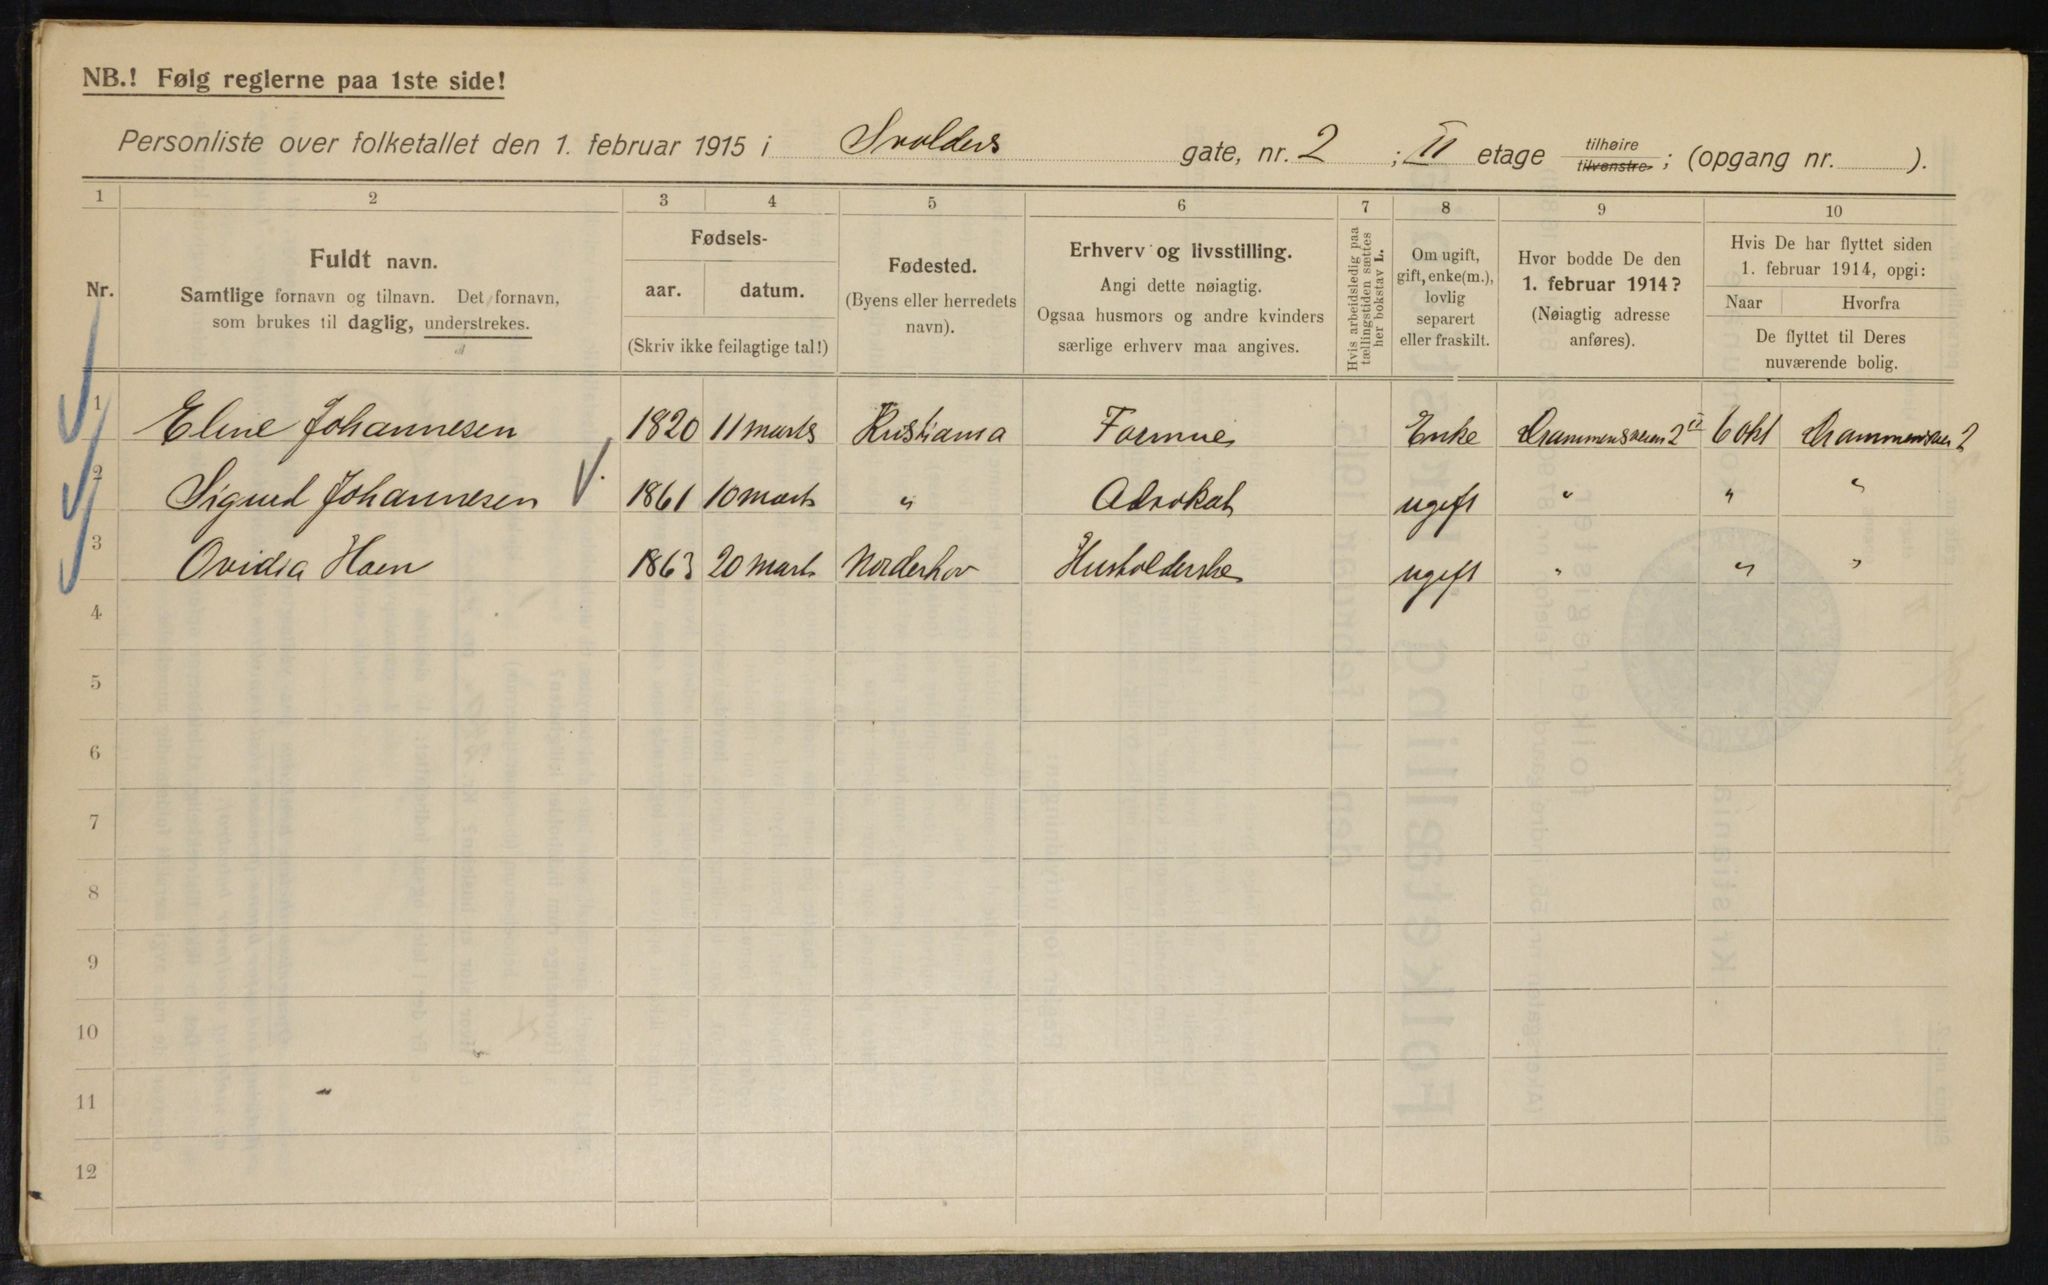 NB.! Følg reglerne paa 1ste side!
Personliste over folketallet den 1. februar 1915 i Svolders gate, nr. 2 ; II etage tilhøire tilvenstre ; (opgang nr. ).
1 2 3 4 5 6 7 8 9 10
Nr.
Fuldt navn.
Samtlige fornavn og tilnavn. Det fornavn,
som brukes til daglig, understrekes.
Fødsels-
aar. datum.
(Skriv ikke feilagtige tal!)
Fødested.
(Byens eller herredets
navn).
Erhverv og livsstilling.
Angi dette nøiagtig.
Ogsaa husmors og andre kvinders
særlige erhverv maa angives.
Hvis arbeidsledig paa
tællingstiden sættes
her bokstav L.
Om ugift,
gift, enke(m.),
lovlig
separert
eller fraskilt.
Hvor bodde De den
1. februar 1914?
(Nøiagtig adresse
anføres).
Hvis De har flyttet siden
1. februar 1914, opgi:
Naar Hvorfra
De flyttet til Deres
nuværende bolig.
1 Eline Johannesen 1820 11 marts Kristiania Formue Enke Drammensveien 2 II 6 okt Drammensveien 2
2 Sigurd Johannesen 1861 10 marts " Advokat ugift " " "
3 Ovidia Hoen 1863 20 marts Norderhov Husholderske ugift " " "
4
5
6
7
8
9
10
11
12